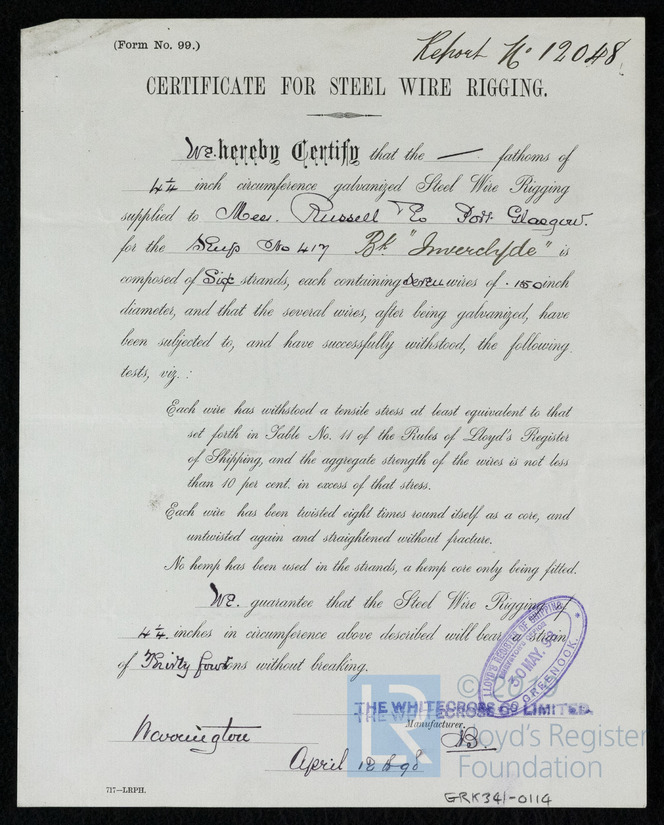 (Form No. 99.)
Report No 12048
CERTIFICATE FOR STEEL WIRE RIGGING.
We hereby Certify that the — fathoms of
4¼ inch circumference galvanized Steel Wire Rigging
supplied to Mess. Russell & Co Port Glasgow.
for the Ship No 417 Bk "Inverclyde" is
composed of Six strands, each containing seven wires of .150 inch
diameter, and that the several wires, after being galvanized, have
been subjected to, and have successfully withstood, the following
tests, viz.:
Each wire has withstood a tensile stress at least equivalent to that
set forth in Table No. 11 of the Rules of Lloyd's Register
of Shipping, and the aggregate strength of the wires is not less
than 10 per cent. in excess of that stress.
Each wire has been twisted eight times round itself as a core, and
untwisted again and straightened without fracture.
No hemp has been used in the strands, a hemp core only being fitted.
We guarantee that the Steel Wire Rigging of
4¼ inches in circumference above described will bear a strain
of Thirty four tons without breaking.
LLOYD'S REGISTER OF SHIPPING
SURVEYOR'S OFFICE
30 MAY. 98
GREENOCK.
THE WHITECROSS CO LIMITED.
Manufacturer.
Warrington
B.
April 12th 98
717—LRPH.
GRK341-0114
©
LR
Lloyd's Register
Foundation